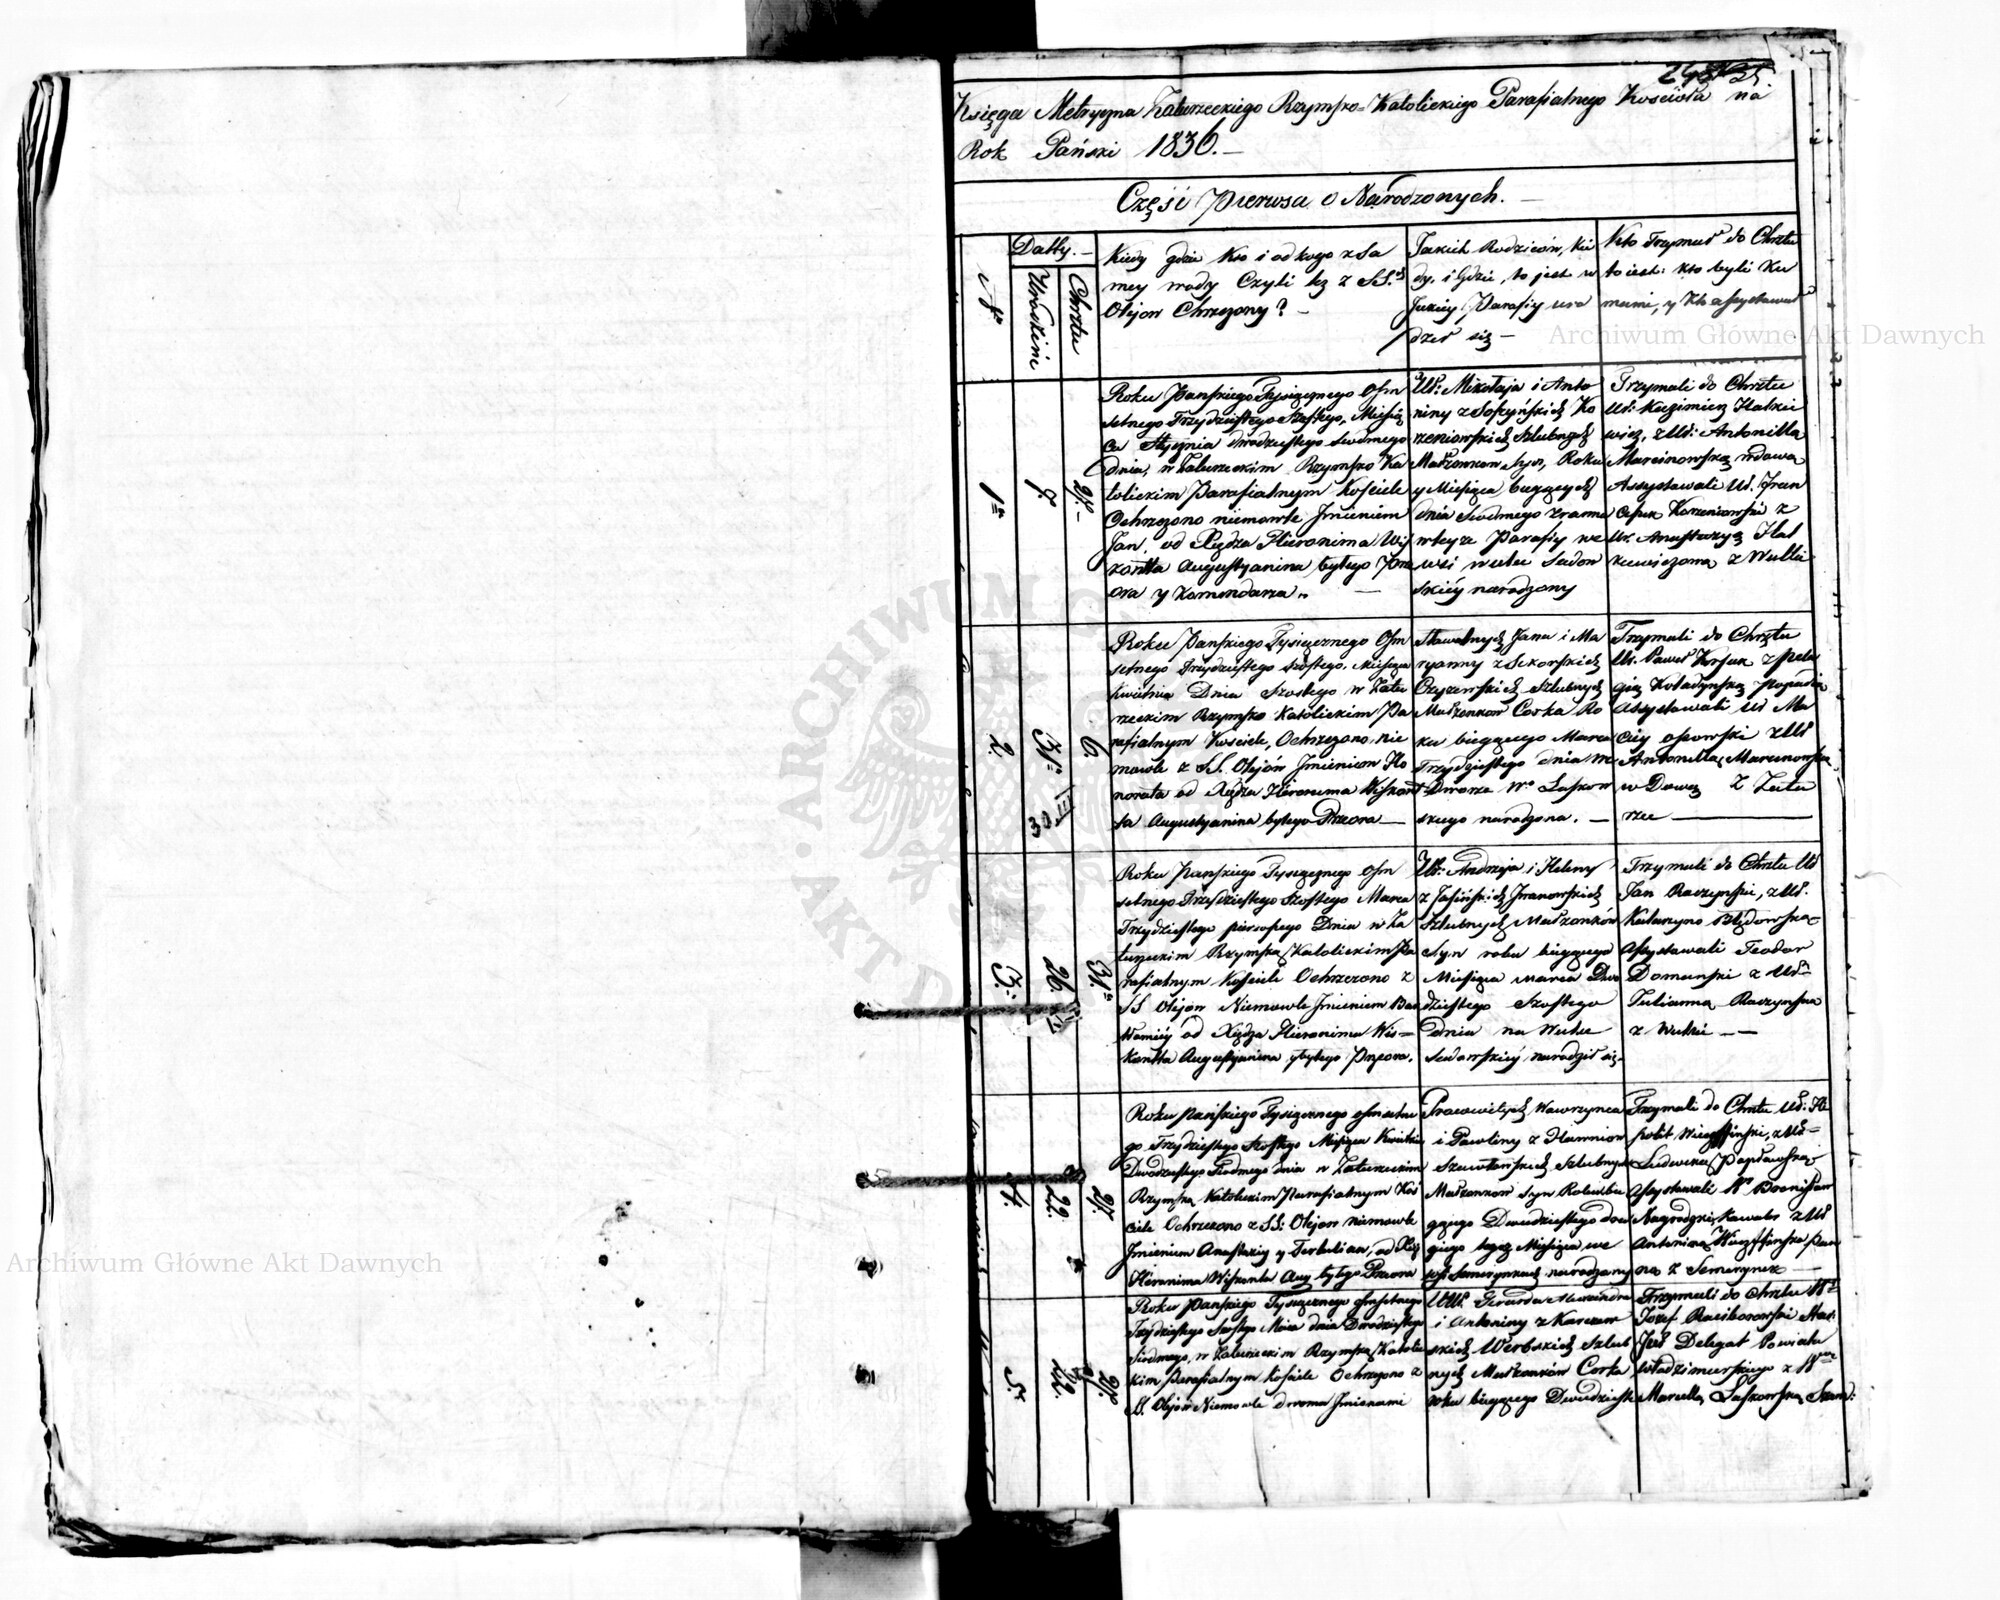 Księga Metryczna Zaturzeckiego Rzymsko-Katolickiego Parafialnego Kościoła na
Rok Pański 1836.
Część Pierwsa o Narodzonych.
No
Datty.
Urodzin
Chrztu
Kiedy gdzie Kto i od kogo z Sa
mey wody Czyli tez z SS.
Olejow Chrzczony?
Jakich Rodziców, kie
dy, i Gdzie, to jest w
Jakiey Parafiy uro
dził się
Kto Trzymał do Chrztu
to iest: kto byli Ku
mami, y Kto assystował
1
7
27
Roku Pańskiego Tysiącznego Ośm
setnego Trzydziestego Szostego, Miesią
ca Stycznia dwadziestego siodmego
dnia, w Zaturzeckim Rzymsko Ka
tolickim Parafialnym Kościele
Ochrzczono niemowle Jmieniem
Jan, od Xiędza Hieronima Wis
kontta Augustyanina byłego Prze
ora y Komendarza
Ur: Mikołaja i Anto
niny z Ko
rzeniowskich Szlubnych
Małzonkow Syn, Roku
y Miesiąca bieżących
dnia Siodmego zrana
w teyze Parafiy we
wsi Wulce Sadow
skiey narodzony
Trzymali do Chrztu
Ur: Kazimierz Hatkie
wicz, z Ur: Antonillą
Marcinowską wdową
Assystowali Ur. Fran
ciszek Korzeniowski z
Ur. Anastazyą Hat
kiewiczową z Wulki
2.
31
30 III
6.
Roku Pańskiego Tysiącznego Ośm
setnego Trzydziestego szostego, Miesiąca
Kwietnia Dnia Szostego w Zatu
rzeckim Rzymsko Katolickim Pa
rafialnym Kościele, Ochrzczono nie
mowle z SS. Olejów Jmieniem Ho
norata od Xiędza Hieronima Wiskont
ta Augustyanina byłego Przeora
Sławetnych Jana i Ma
ryanny z Sikorskich
Czyzewskich Szlubnych
Małzonkow Corka Ro
ku bieżącego Marca
Trzydziestego dnia we
Dworze Wo Laskow
skiego narodzona.
Trzymali do Chrztu
Ur. Paweł Korsak z Pela
gią Kotadyńską
Assystowali Ur Ma
ciey osowski z Ur
Antonillą Marcinowską
w Dową z Zatu
rzec
3.
26.
31
Roku Pańskiego Tysiącznego Ośm
setnego Trzydziestego Szostego Marca
Trzydziestego pierwszego Dnia w Za
turzeckim Rzymsko Katolickim Pa
rafialnym Kościele Ochrzczono z
SS Olejow Niemowle Jmieniem Bar
łomiey od Xiędza Hieronima Wis
kontta Augustyanina y byłego Przeora.
Ur: Andrzeja i Heleny
z Jasińskich Iwanowskich
Szlubnych Małzonków
Syn roku bieżącego
Miesiąca marca Dwu
dziestego Szostego
dnia na Wulce
Sadowskiey narodził się
Trzymali do Chrztu Ur
Jan Raczynski, z Ur.
Katarzyną
Assystowali Teodor
Domanski z Ur
Julianną Raczynską
z Wulki
4.
22.
27.
Roku Pańskiego Tysiącznego ośmsetne
go Trzydziestego Szostego Miesiąca Kwietnia
Dwudziestego Siodmego dnia w Zaturzeckim
Rzymsko Katolickim Parafialnym Koś
ciele Ochrzczono z SS: Olejow niemowle
Jmieniem Anastazy y Tertulian, od Xię
Hieronima Wiskonta Aug byłego Przeora
Pracowitych Wawrzynca
i Pawliny z
Szlubnych
Małzonkow Syn Roku bie
żącego Dwudziestego dru
giego tegoż Miesiąca, we
wsi Semerynkach narodzony
Trzymali do Chrztu Ur: Hi
polit z Ur
Ludwiką Popławską
Assystowali Ur Bronisław
Nagrodzki, Kawaler z Ur
Antoniną Pan
ną z Semerynek
5.
22.
27.
Roku Pańskiego Tysiącznego ośmsetnego
Trzydziestego Szostego Maia dnia Dwudziestego
Siodmego, w Zaturzeckim Rzymsko Katolic
kim Parafialnym Kościele Ochrzczono z
SS. Olejów Niemowle dwoma Jmionami
UUr. Gerarda Alexandra
i Antoniny z Karczew
skich Werbskich Szlub
nych Małzonków Corka
roku bieżącego Dwudziesteg
Trzymali do Chrztu
Jozef Raciborowski
Delegat Powiatu
Włodzimierskiego z
Marcellą Laskowską
Archiwum Główne Akt Dawnych
Archiwum Główne Akt Dawnych